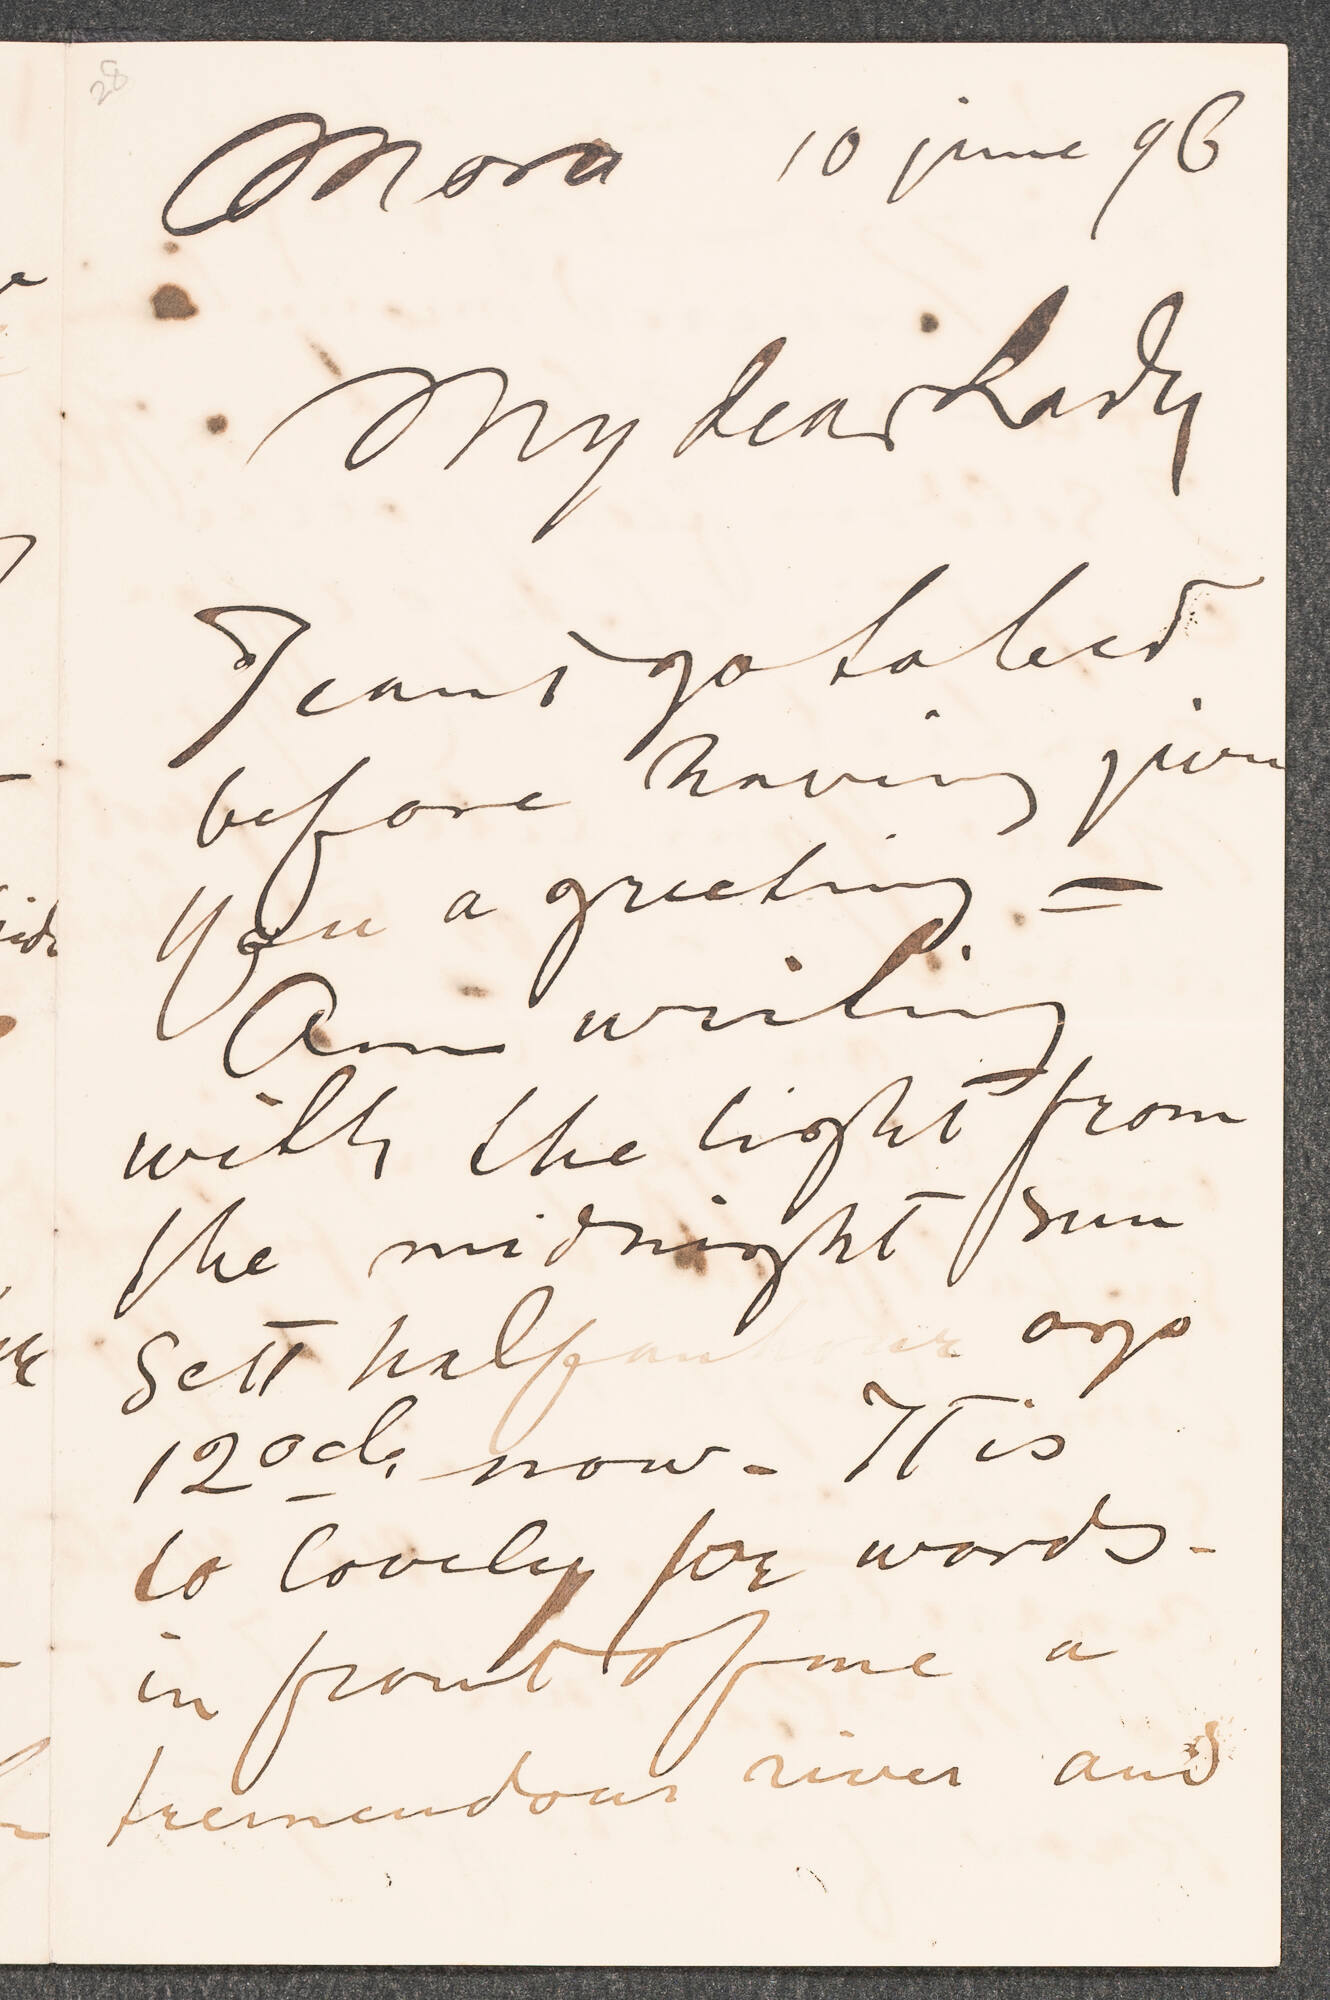 28
Mora 10 june 96
My dear Lady
I cant go to bed
before having given
you a greeting =
Am writing
with the light from
the midnight sun
Sett half an hour ago
12 ock. now - It is
to lovely for words -
in front of me a
tremendous river and